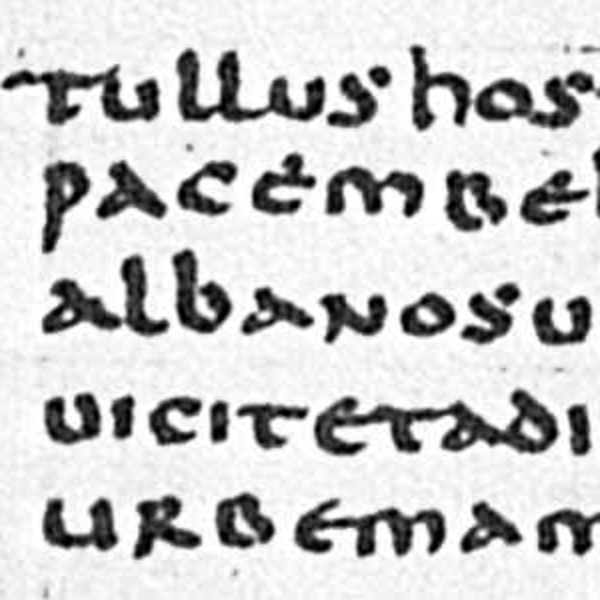 tullushos
pacembel
albanosu
uicitetadi
urbemam